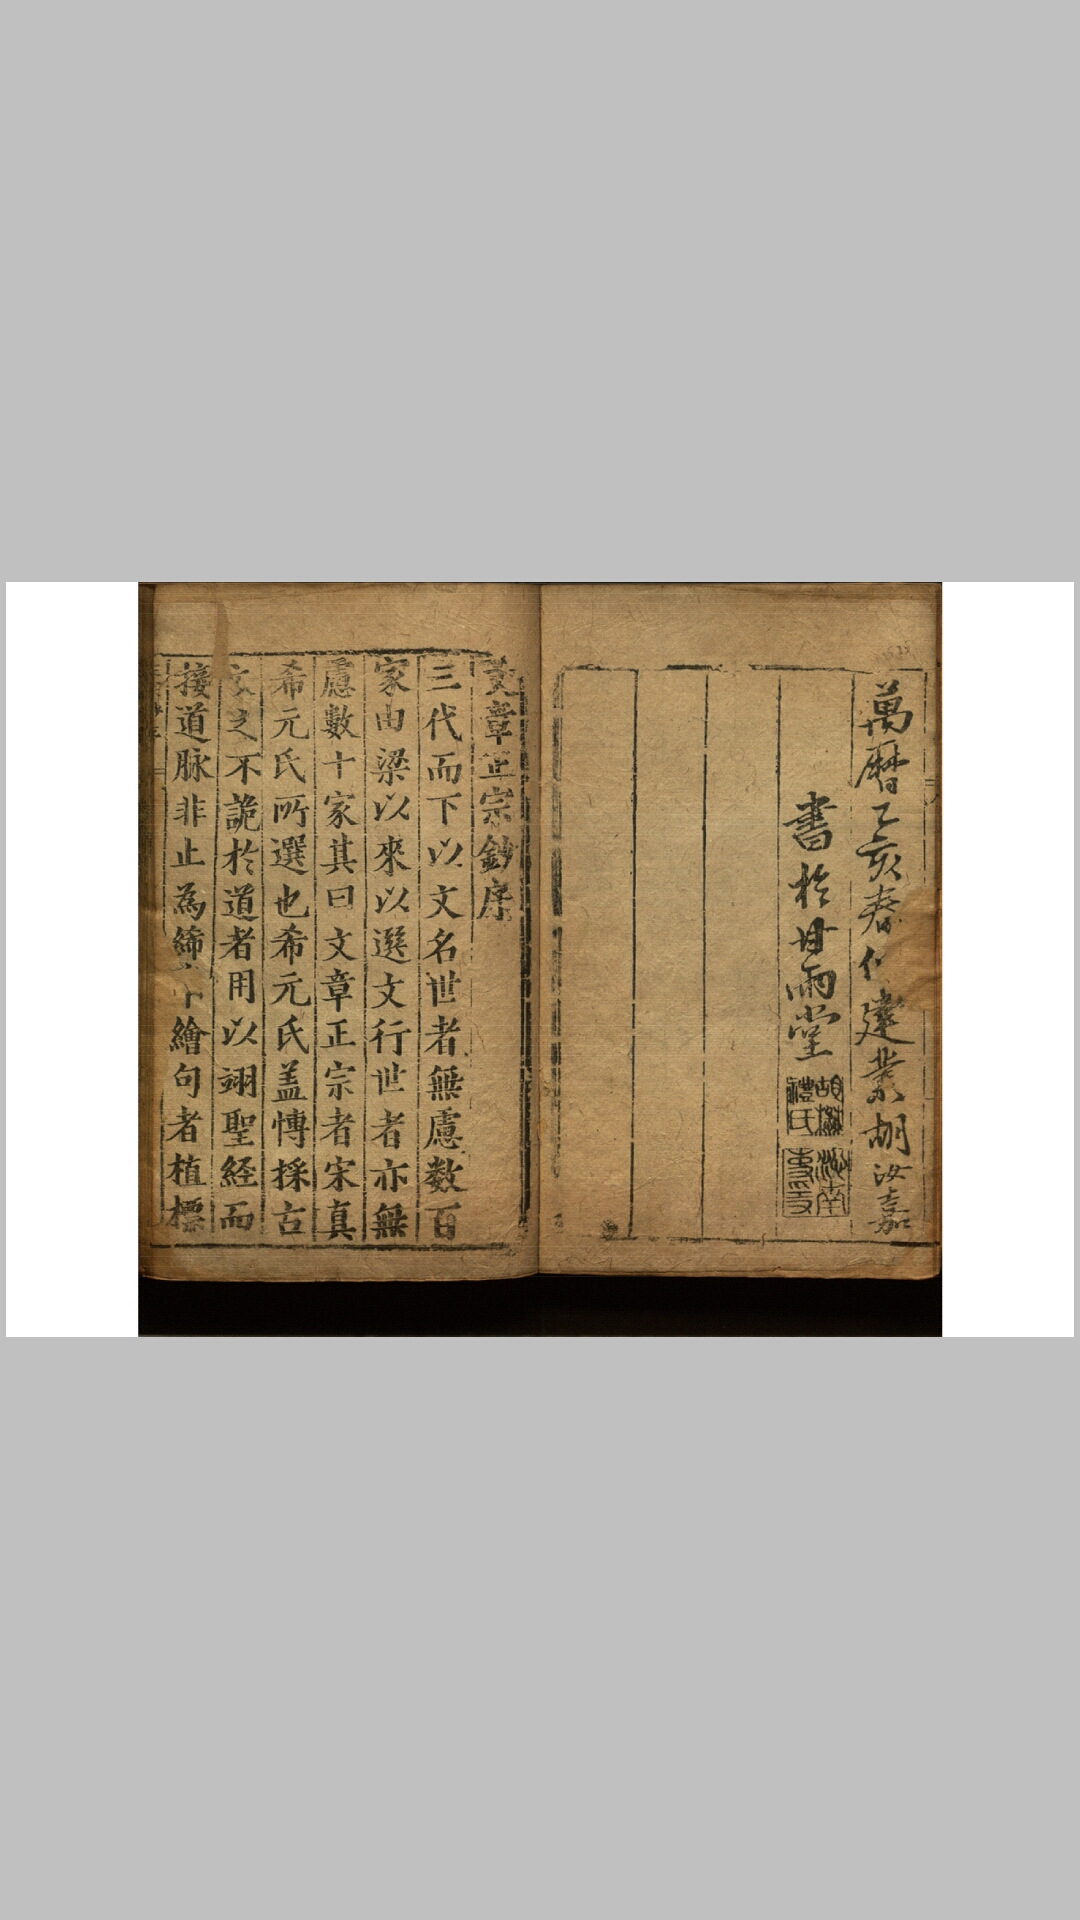 萬曆乙亥春仲建業胡汝嘉
書於甘雨堂
文章正宗鈔序
三代而下以文名世者無慮数百
家由梁以來以選文行世者亦無
慮數十家其曰文章正宗者宋真
希元氏所選也希元氏盖慱採古
文之不詭於道者用以翊聖経而
接道脉非止為絺 繪句者植標